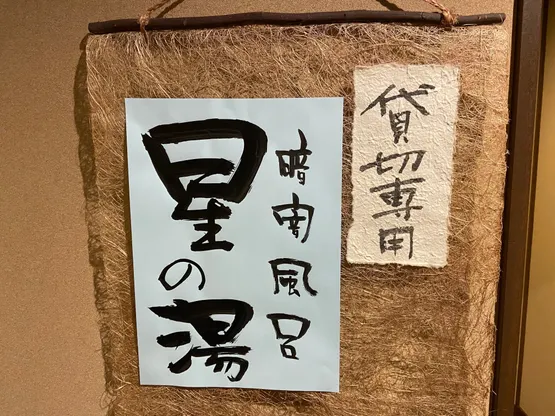 貸切専用
暗闇風呂
星の湯